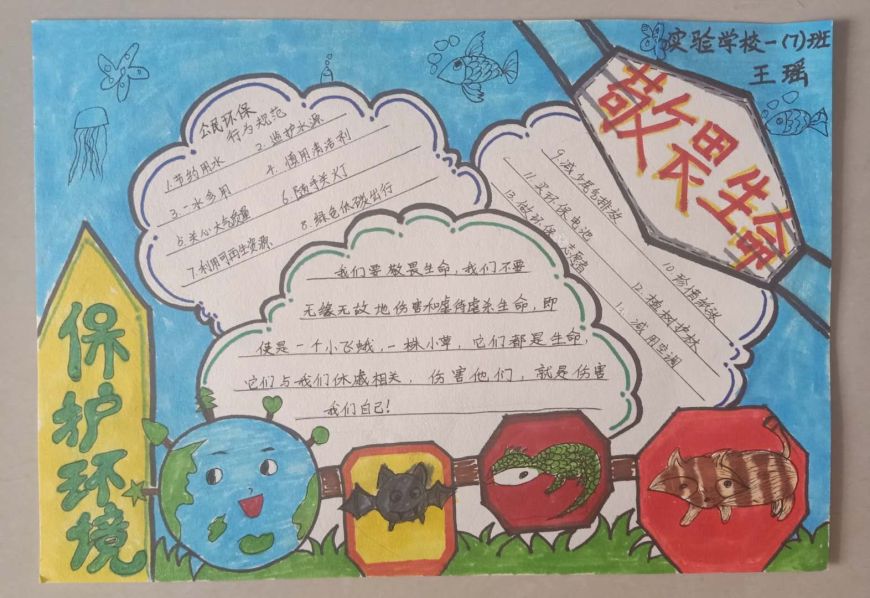 实验学校一(7)班
王瑶
敬畏生命
保护环境
公民环保
行为规范
1.节约用水 2.监护水源
3.一水多用 4.慎用清洁剂
5.关心大气质量 6.随手关灯
7.利用可再生资源 8.绿色低碳出行
9.减少尾气排放
10.珍惜纸张
11.买环保电池
12.植树护林
13.做环保志愿者
减用空调
我们要敬畏生命,我们不要
无缘无故地伤害和虐待虐杀生命,即
使是一个小飞蛾,一株小草,它们都是生命,
它们与我们休戚相关,伤害他们,就是伤害
我们自己!